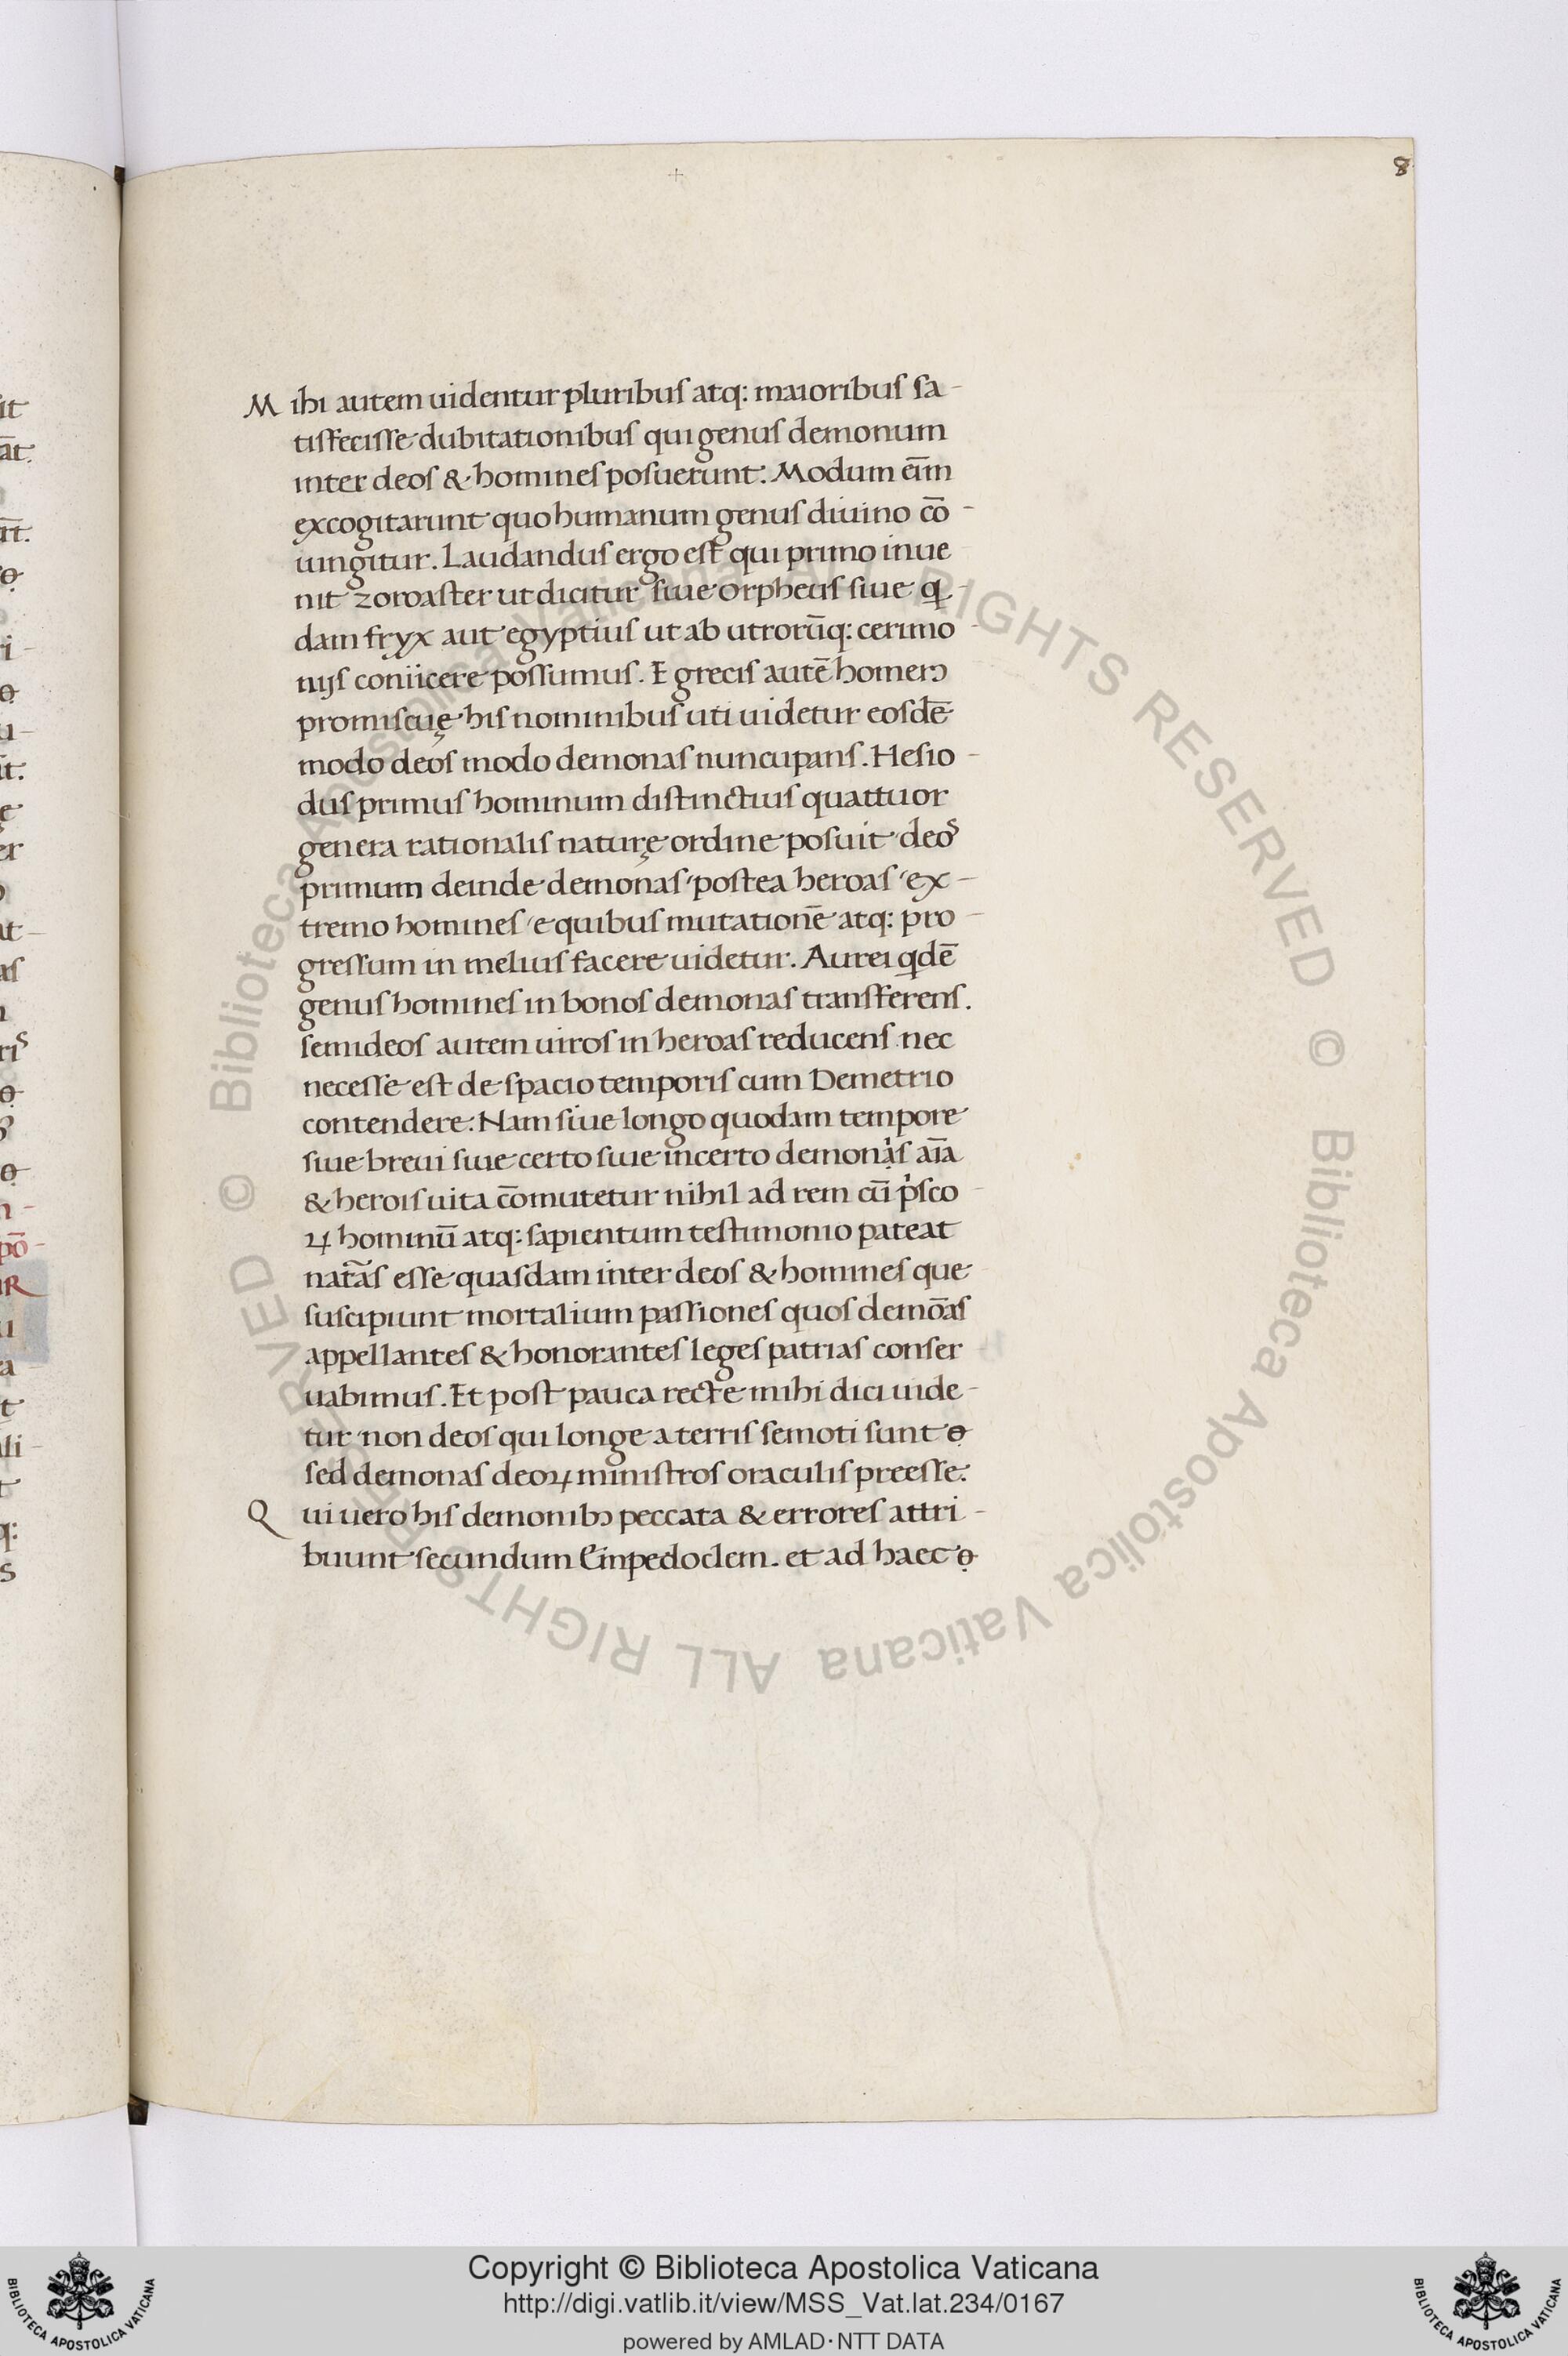 8
Mihi autem uidentur pluribus atq: maioribus sa-
tisfecisse dubitationibus qui genus demonum
inter deos & homines posuerunt: Modum eīm
excogitarunt quo humanum genus diuino cō-
iungitur. Laudandus ergo est qui primo inue
nit zoroaster ut dicitur siue orpheus siue q-
dam fryx aut egyptius ut ab utrorūq: cerimo-
nijs coniicere possumus. E grecis autē homerꝰ
promiscuę his nominibus uti uidetur eosdē
modo deos modo demonas nuncupans. Hesio-
dus primus hominum distinctius quattuor
genera rationalis naturę ordine posuit deos
primum deinde demonas / postea heroas / ex-
tremo homines / e quibus mutationē atq: pro-
gressum in melius facere uidetur. Aurei qdē
genus homines in bonos demonas transferens.
semideos autem uiros in heroas reducens. nec
necesse est de spacio temporis cum Demetrio
contendere: Nam siue longo quodam tempore
siue breui siue certo siue incerto demonas aīa
& herois uita cōmutetur nihil ad rem cū pͥsco-
ꝝ hominū atq: sapientum testimonio pateat
nat̄as esse quasdam inter deos & homines que
suscipiunt mortalium passiones quos demōas
appellantes & honorantes leges patrias conser
uabimus. Et post pauca recte mihi dici uide-
tur non deos qui longe a terris semoti sunt ɵ
sed demonas deoꝝ ministros oraculis preesse.
Qui uero his demonibꝰ peccata & errores attri-
buunt secundum Empedoclem. et ad haec ɵ
Copyright © Biblioteca Apostolica Vaticana
http://digi.vatlib.it/view/MSS_Vat.lat.234/0167
powered by AMLAD·NTT DATA
BIBLIOTECA APOSTOLICA VATICANA
BIBLIOTECA APOSTOLICA VATICANA
© Biblioteca Apostolica Vaticana ALL RIGHTS RESERVED © Biblioteca Apostolica Vaticana ALL RIGHTS RESERVED